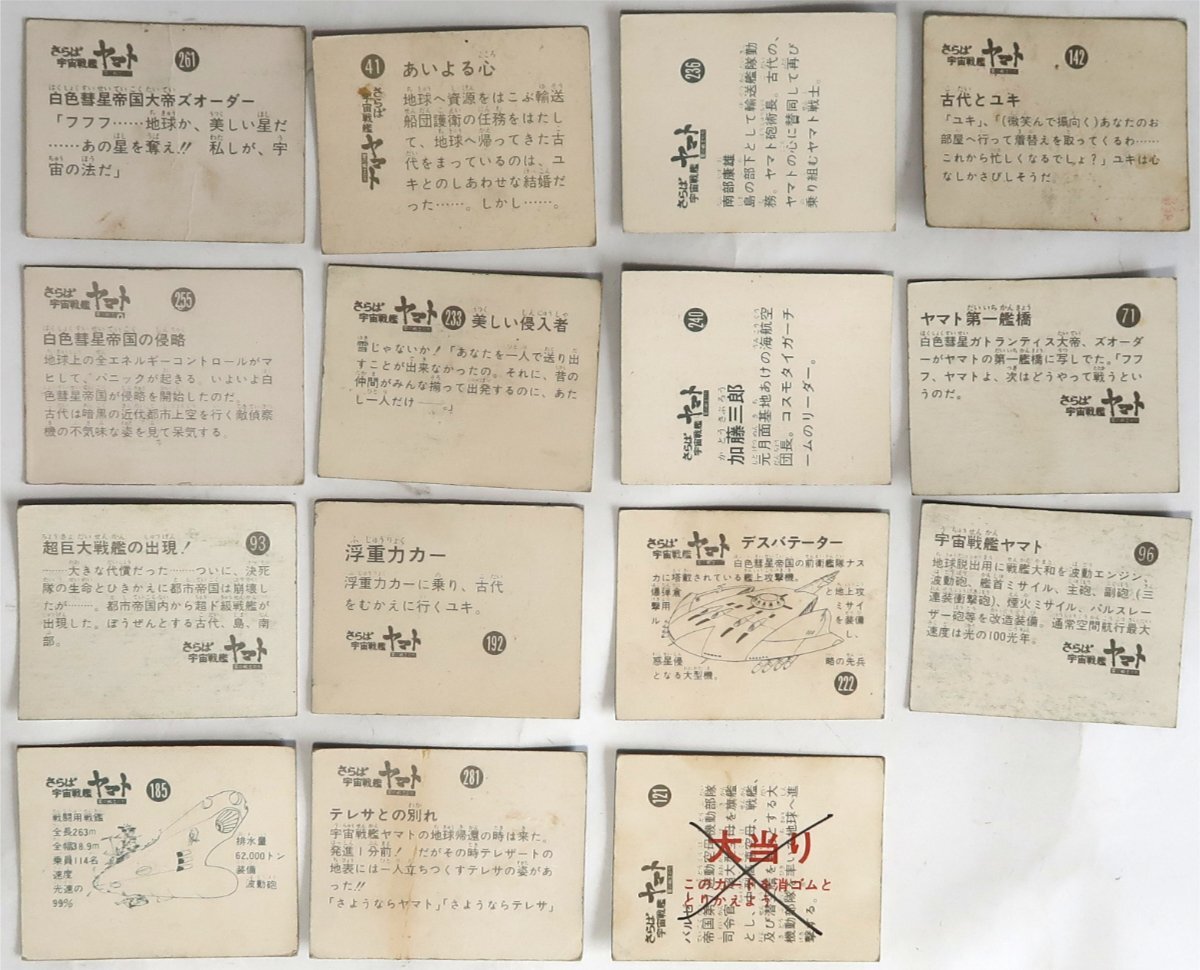 さらば
宇宙戦艦
ヤマト
261
白色彗星帝国大帝ズオーダー
「フフフ……地球か、美しい星だ
……あの星を奪え!! 私しが、宇
宙の法だ」
41
あいよる心
さらば
宇宙戦艦
ヤマト
地球へ資源をはこぶ輸送
船団護衛の任務をはたし
て、地球へ帰ってきた古
代をまっているのは、ユ
キとのしあわせな結婚だ
った……。しかし……。
236
さらば
宇宙戦艦
ヤマト
南部康雄
島の部下として輸送艦隊勤
務。ヤマト砲術長。古代の、
ヤマトの心に賛同して再び
乗り組むヤマト戦士。
さらば
宇宙戦艦
ヤマト
142
古代とユキ
「ユキ」、「(微笑んで振向く)あなたのお
部屋へ行って着替えを取ってくるわ……
これから忙しくなるでしょ?」ユキは心
なしかさびしそうだ
さらば
宇宙戦艦
ヤマト
255
白色彗星帝国の侵略
地球上の全エネルギーコントロールがマ
ヒして、パニックが起きる。いよいよ白
色彗星帝国が侵略を開始したのだ。
古代は暗黒の近代都市上空を行く敵偵察
機の不気味な姿を見て呆気する。
さらば
宇宙戦艦
ヤマト
233
美しい侵入者
雪じゃないか!「あなたを一人で送り出
すことが出来なかったの。それに、昔の
仲間がみんな揃って出発するのに、あた
し一人だけ――。」
240
さらば
宇宙戦艦
ヤマト
加藤三郎
元月面基地あけの海航空
団長。コスモタイガーチ
ームのリーダー。
ヤマト第一艦橋
71
白色彗星ガトランティス大帝、ズオーダ
ーがヤマトの第一艦橋に写しでた。「フフ
フ、ヤマトよ、次はどうやって戦うとい
うのだ。
さらば
宇宙戦艦
ヤマト
超巨大戦艦の出現!
93
……大きな代償だった……ついに、決死
隊の生命とひきかえに都市帝国は崩壊し
たが……。都市帝国内から超ド級戦艦が
出現した。ぼうぜんとする古代、島、南
部。
さらば
宇宙戦艦
ヤマト
浮重力カー
浮重力カーに乗り、古代
をむかえに行くユキ。
さらば
宇宙戦艦
ヤマト
192
さらば
宇宙戦艦
ヤマト
デスバテーター
白色彗星帝国の前衛艦隊ナス
カに塔載されている艦上攻撃機。
爆弾倉
と地上攻
撃用
ミサイ
ル
を装備
し、
惑星侵
略の先兵
となる大型機。
222
宇宙戦艦ヤマト
96
地球脱出用に戦艦大和を波動エンジン、
波動砲、艦首ミサイル、主砲、副砲(三
連装衝撃砲)、煙火ミサイル、パルスレー
ザー砲等を改造装備。通常空間航行最大
速度は光の100光年。
さらば
宇宙戦艦
ヤマト
さらば
宇宙戦艦
ヤマト
185
戦闘用戦艦
全長263m
全幅38.9m
乗員114名
速度
光速の
99%
排水量
62,000トン
装備
波動砲
さらば
宇宙戦艦
ヤマト
281
テレサとの別れ
宇宙戦艦ヤマトの地球帰還の時は来た。
発進1分前! だがその時テレザートの
地表には一人立ちつくすテレサの姿があ
った!!
「さようならヤマト」「さようならテレサ」
121
さらば
宇宙戦艦
ヤマト
大当り
このカードを消ゴムと
とりかえます